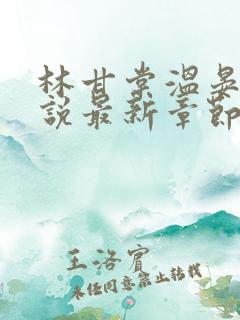 林甘棠温晏
说最新章节
王洛宾
未经同意禁止转载